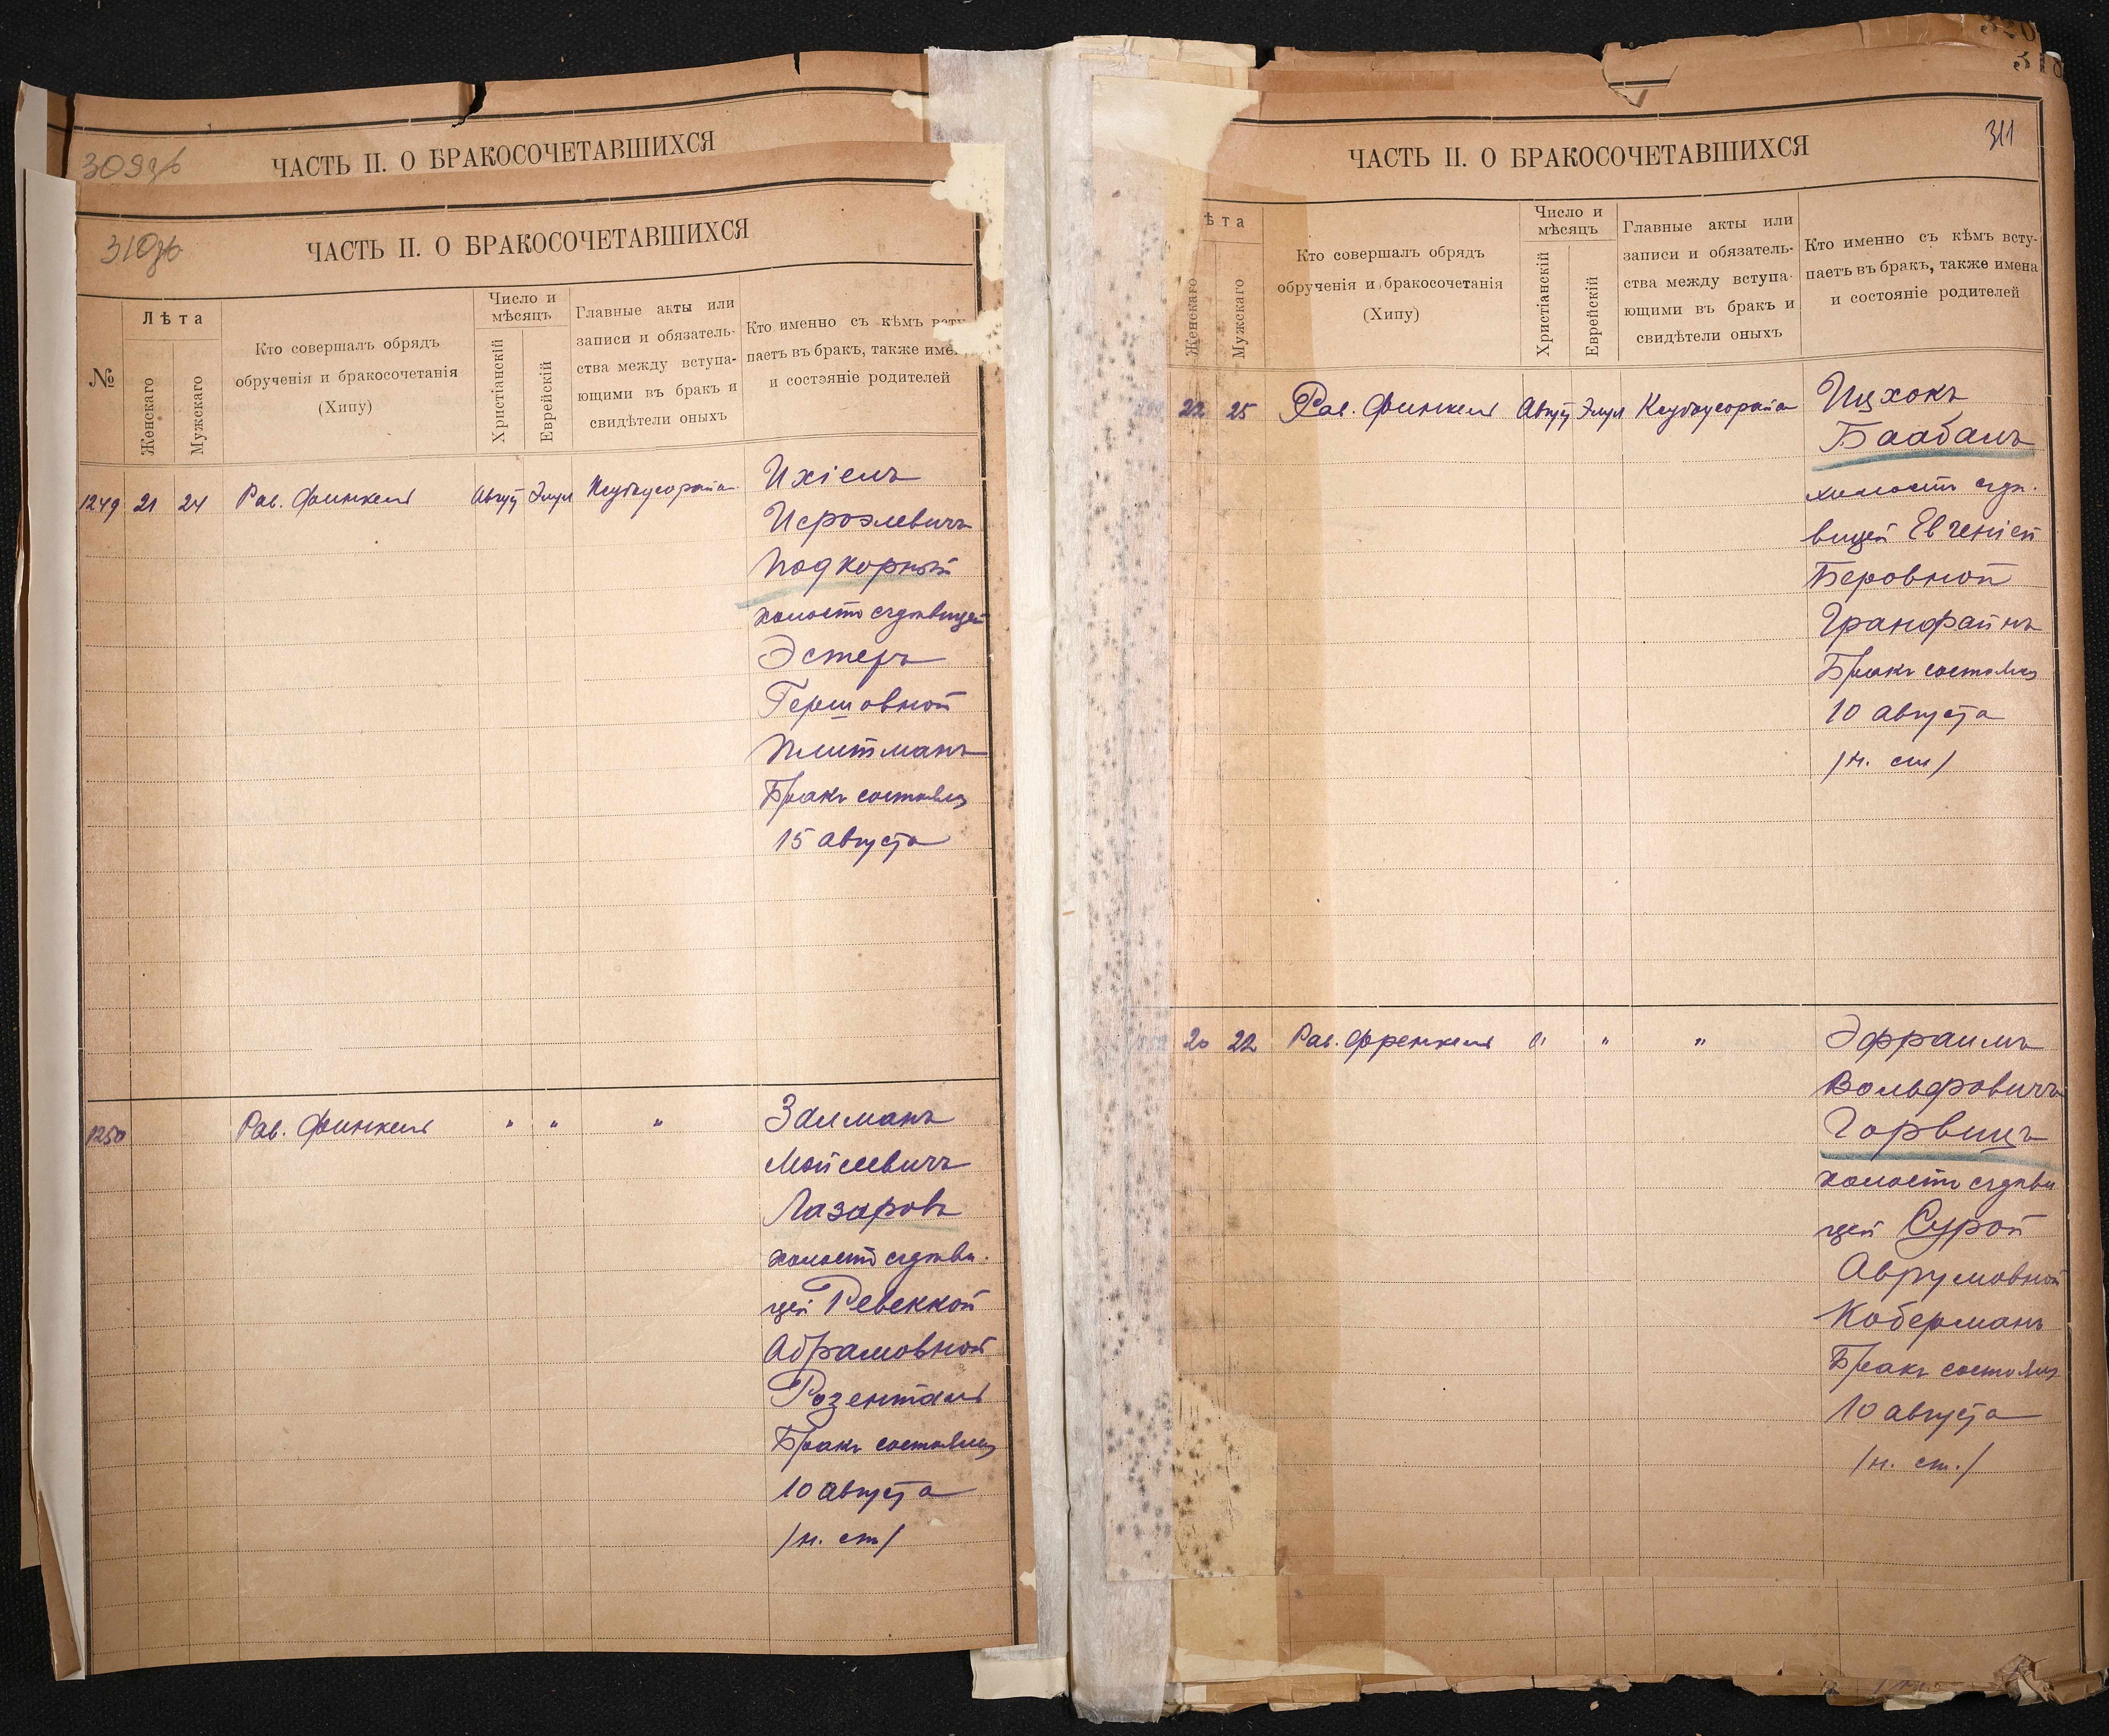 309об
ЧАСТЬ II. О БРАКОСОЧЕТАВШИХСЯ
310об
ЧАСТЬ II. О БРАКОСОЧЕТАВШИХСЯ
№
Лѣта
Женскаго
Мужскаго
Кто совершалъ обрядъ
обрученія и бракосочетанія
(Хипу)
Число и
мѣсяцъ
Христіанскій
Еврейскій
Главные акты или
записи и обязатель-
ства между вступа-
ющими въ бракъ и
свидѣтели оныхъ
Кто именно съ кѣмъ всту
паетъ въ бракъ, также име
и состояніе родителей
1249 21 24 Рав. Финкель Август Элул
Ихіелъ
Исроэлевичъ
Подкорный
холостъ съ дѣвицей
Эстеръ
Гершовной
Плитманъ
Бракъ состоялся
15 августа
1250 Рав. Финкель " " "
Залманъ
Мойсеевичъ
Лазаровъ
холостъ съ дѣви-
цей Ревеккой
Абрамовной
Розенталь
Бракъ состоялся
10 августа
/н. ст/
320
318
311
ЧАСТЬ II. О БРАКОСОЧЕТАВШИХСЯ
ѣта
Женскаго
Мужскаго
Кто совершалъ обрядъ
обрученія и бракосочетанія
(Хипу)
Число и
мѣсяцъ
Христіанскій
Еврейскій
Главные акты или
записи и обязатель-
ства между вступа-
ющими въ бракъ и
свидѣтели оныхъ
Кто именно съ кѣмъ всту-
паетъ въ бракъ, также имена
и состояніе родителей
22 25 Рав. Финкель Август Элул
Ицхокъ
Баабанъ
холостъ съ дѣ-
вицей Евгеніей
Беровной
Гранфайнъ
Бракъ состоялся
10 августа
/н. ст/
20 22 Рав. Френкель " " "
Эфраимъ
Вольфовичъ
Горвицъ
холостъ съ дѣви
цей Сурой
Аврумовной
Коберманъ
Бракъ состоялся
10 августа
/н. ст./